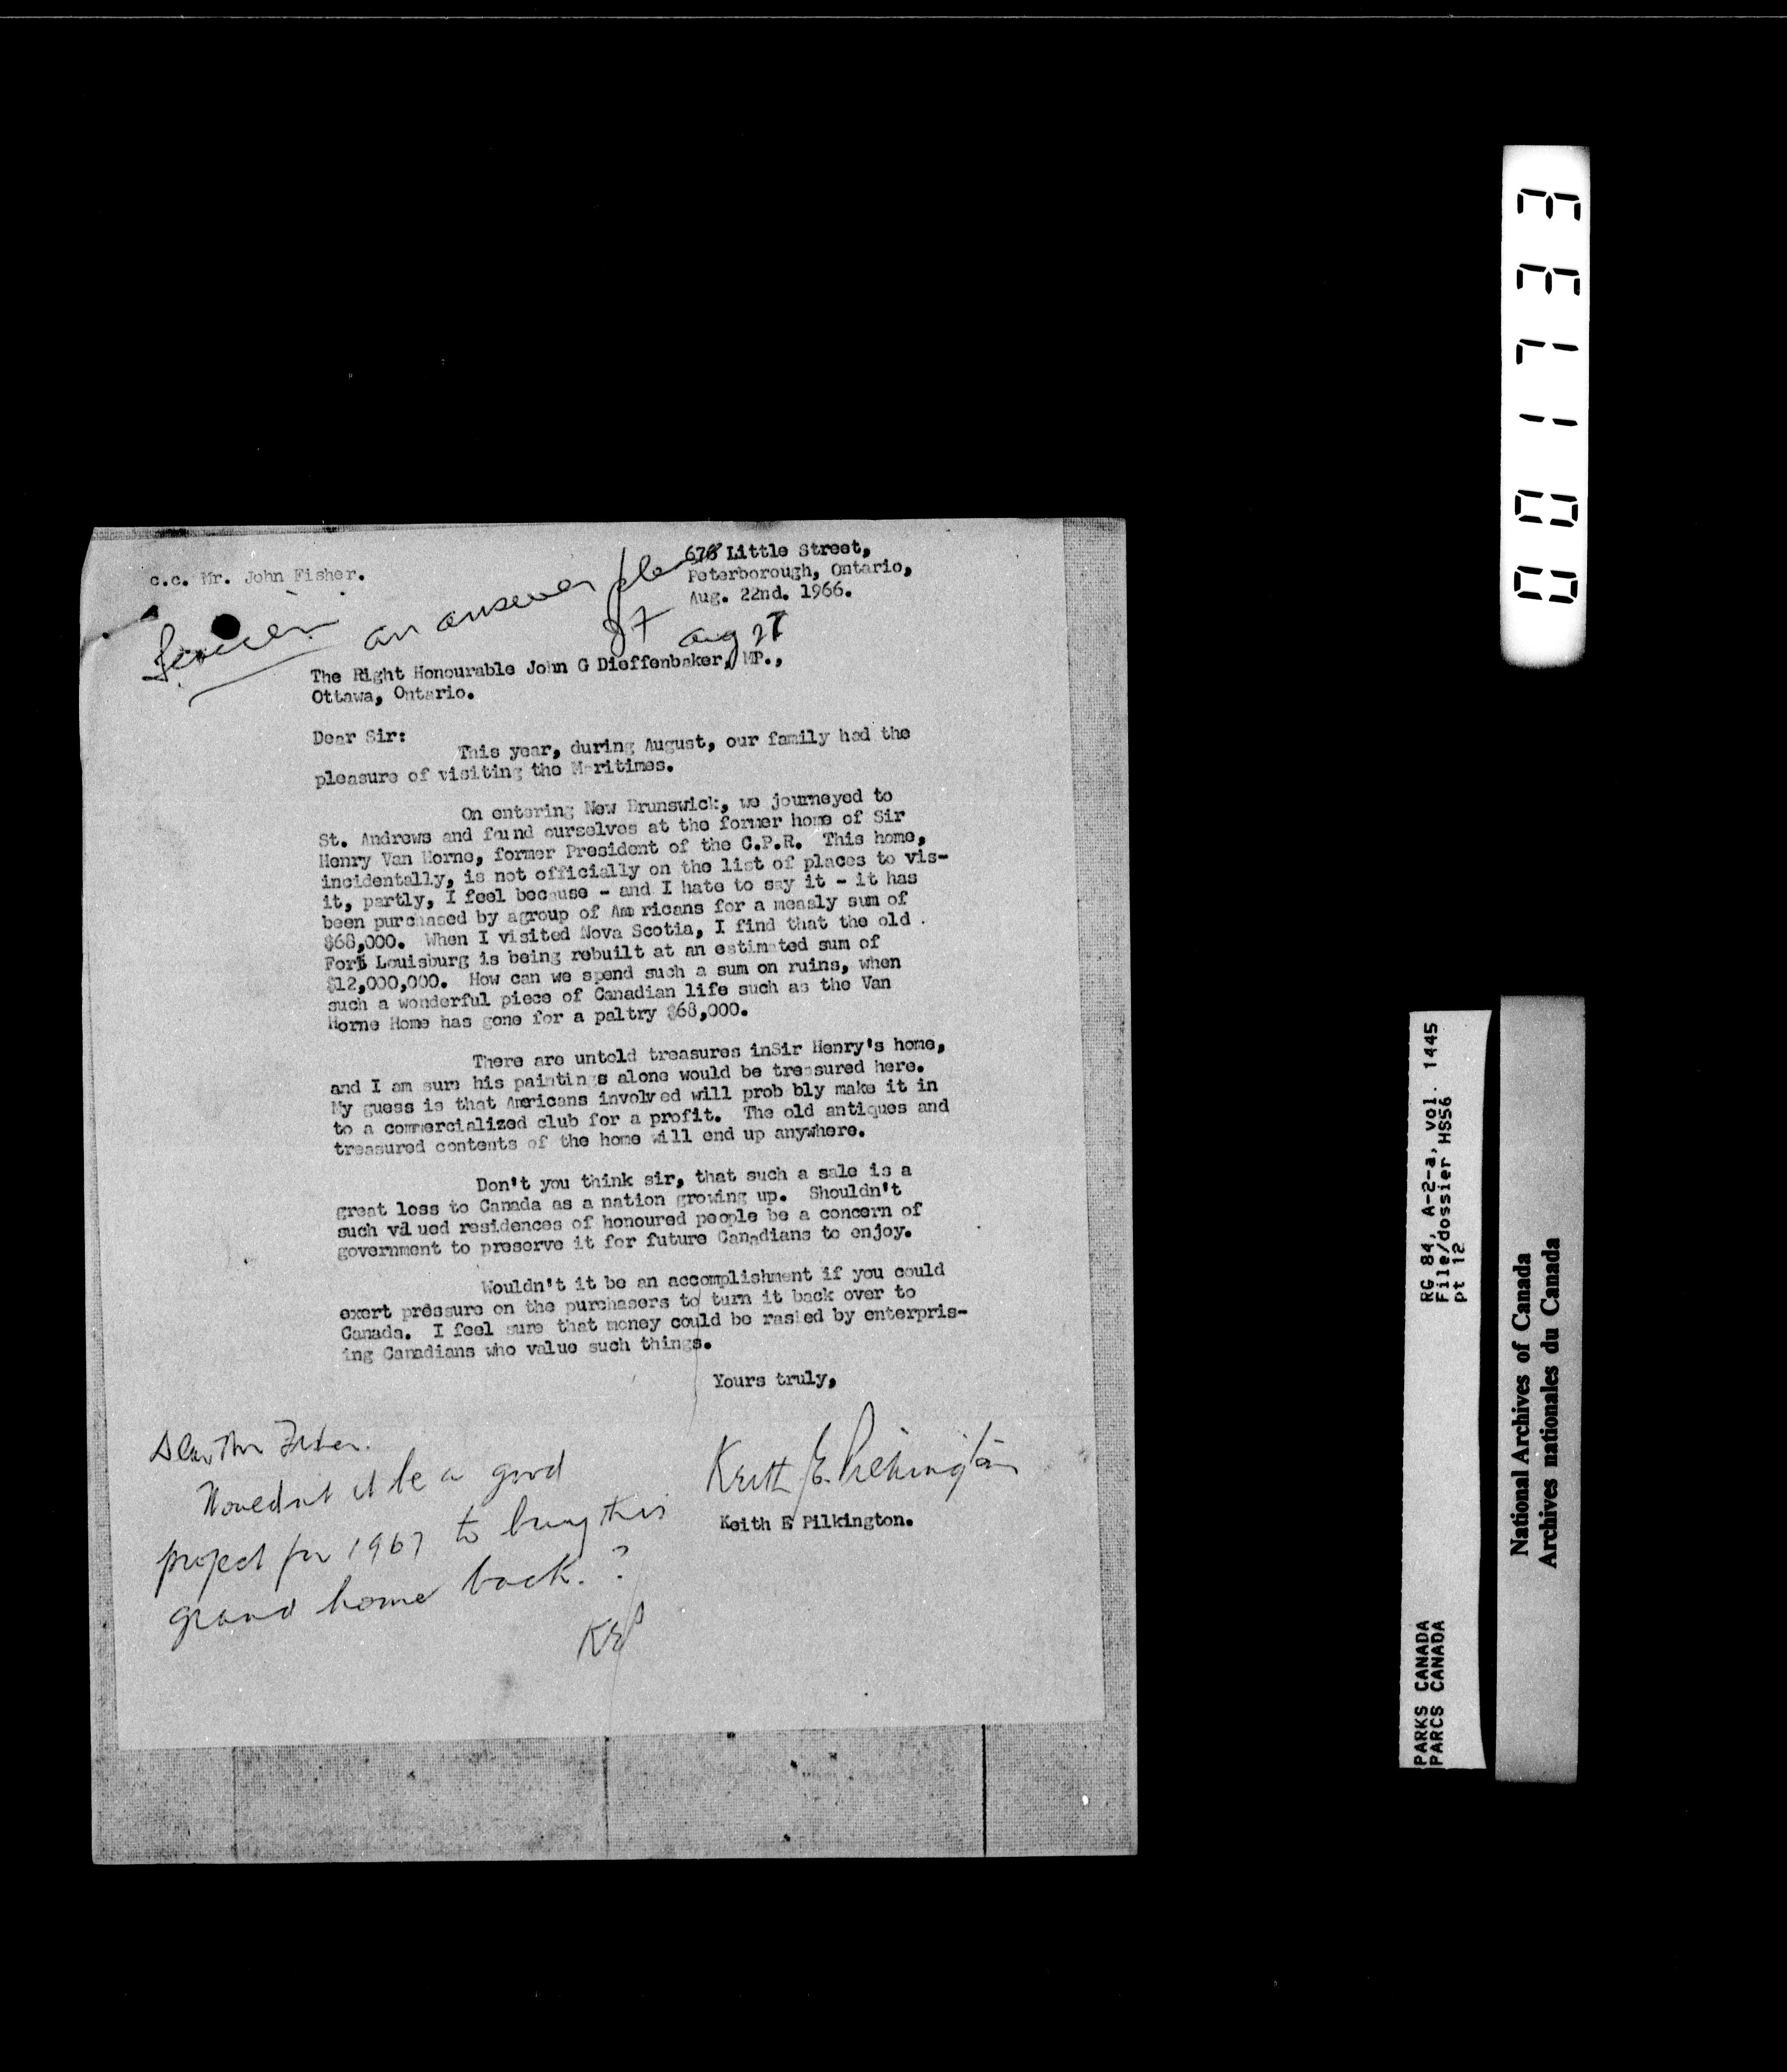 c.c. Mr. John Fisher.
Little Street,
Peterborough, Ontario,
Aug. 22nd. 1966.
an answer please
JF Aug 27
The Right Honourable John G Dieffenbaker, MP.,
Ottawa, Ontario.
Dear Sir:
This year, during August, our family had the
pleasure of visiting the Maritimes.
On entering New Brunswick, we journeyed to
St. Andrews and found ourselves at the former home of Sir
Henry Van Horne, former President of the C.P.R. This home,
incidentally, is not officially on the list of places to vis-
it, partly, I feel because - and I hate to say it - it has
been purchased by agroup of Americans for a measly sum of
$68,000. When I visited Nova Scotia, I find that the old
Fort Louisburg is being rebuilt at an estimated sum of
$12,000,000. How can we spend such a sum on ruins, when
such a wonderful piece of Canadian life such as the Van
Horne Home has gone for a paltry $68,000.
There are untold treasures inSir Henry's home,
and I am sure his paintings alone would be treasured here.
My guess is that Americans involved will prob bly make it in
to a commercialized club for a profit. The old antiques and
treasured contents of the home will end up anywhere.
Don't you think sir, that such a sale is a
great loss to Canada as a nation growing up. Shouldn't
such valued residences of honoured people be a concern of
government to preserve it for future Canadians to enjoy.
Wouldn't it be an accomplishment if you could
exert pressure on the purchasers to turn it back over to
Canada. I feel sure that money could be rasied by enterpris-
ing Canadians who value such things.
Yours truly,
Keith E. Pilkington
Keith E Pilkington.
Dear Mr Fisher.
Wouldnt it be a good
project for 1967 to bring this
grand home back.?
KEP
001733
RG 84, A-2-a, vol. 1445
File/dossier HS56
pt 12
PARKS CANADA
PARCS CANADA
National Archives of Canada
Archives nationales du Canada